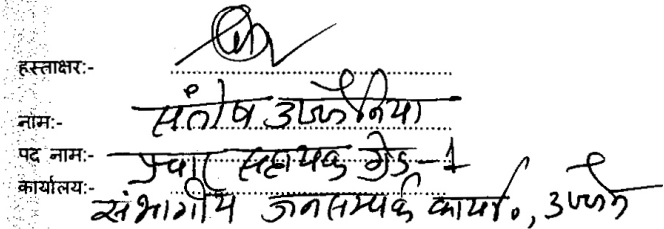 हस्ताक्षर:-
नाम:- संतोष उज्जैनिया
पद नाम:- प्रचार सहायक ग्रेड-1
कार्यालय:- संभागीय जनसम्पर्क कार्या०, उज्जैन